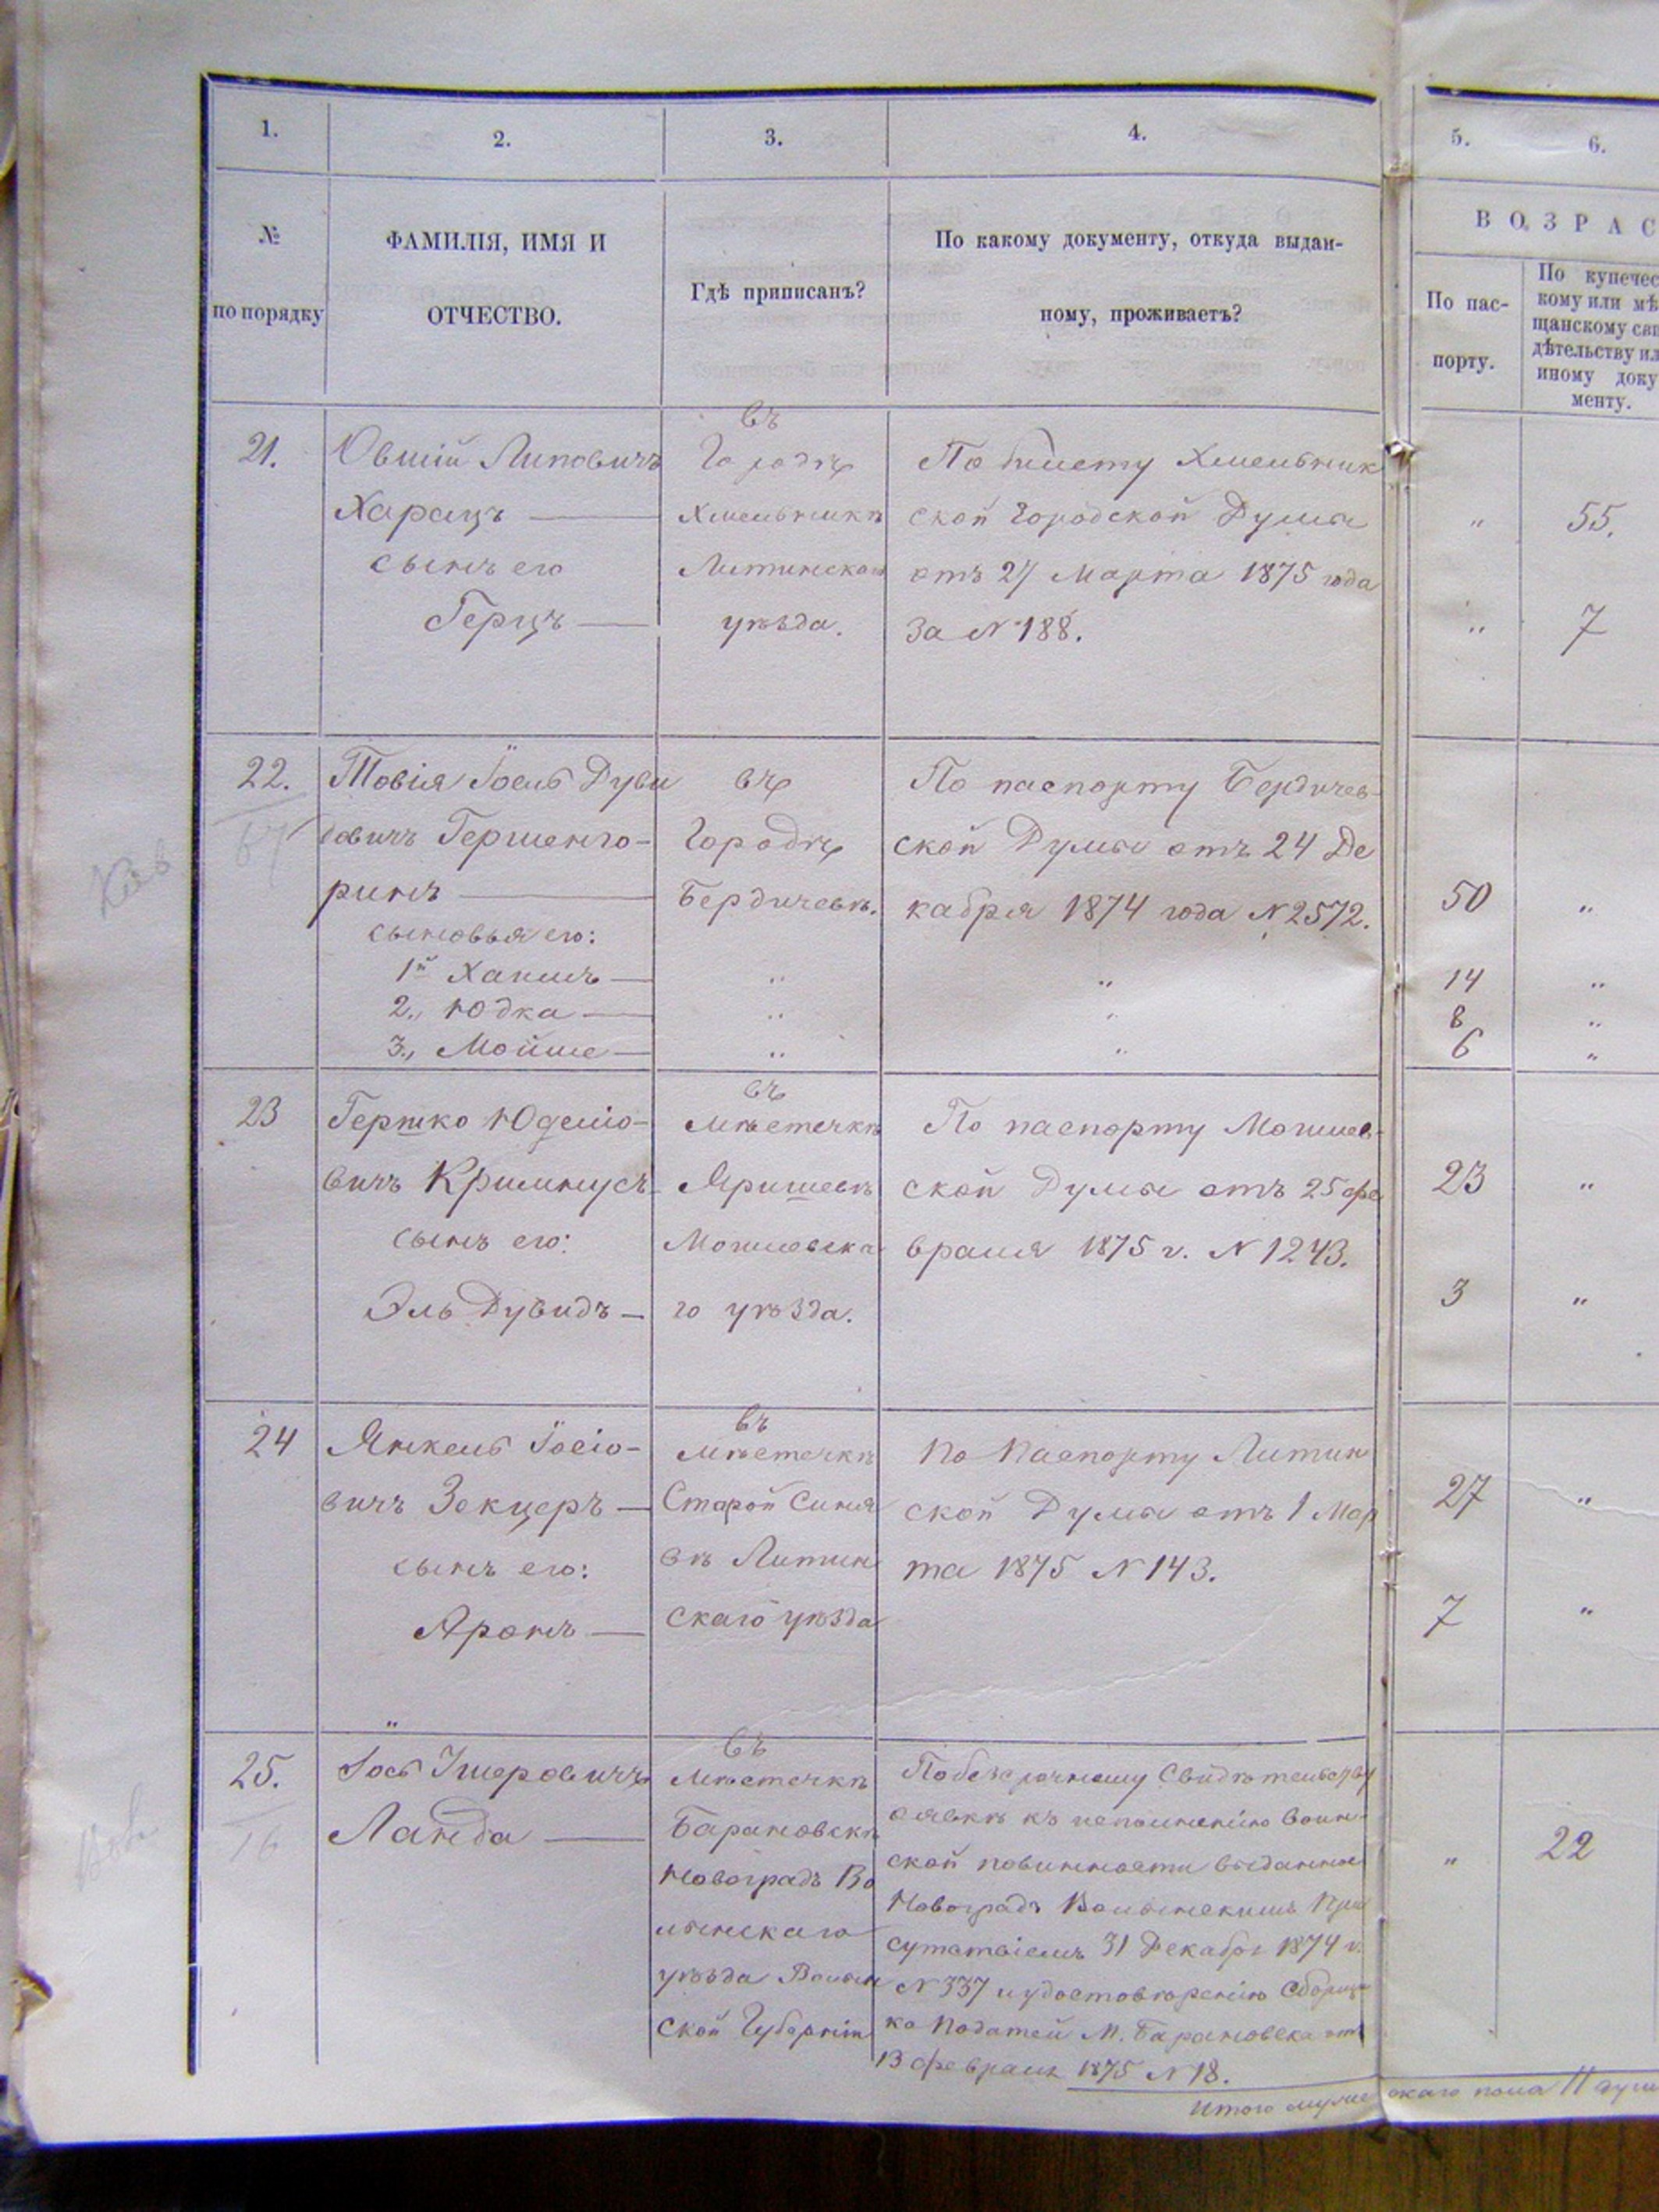 1.
2.
3.
4.
5.
6.
№
по порядку
ФАМИЛІЯ, ИМЯ И
ОТЧЕСТВО.
Гдѣ приписанъ?
По какому документу, откуда выдан-
ному, проживаетъ?
ВОЗРАС
По пас-
порту.
По купечес
кому или мѣ
щанскому сви
дѣтельству ил
иному доку
менту.
21.
Овшій Липовичъ
Харацъ —
сынъ его
Герцъ —
въ
Городѣ
Хмельникѣ
Литинскаго
уѣзда.
По билету Хмельник
ской Городской Думы
отъ 27 Марта 1875 года
за № 188.
" 55.
" 7
22.
Товія Іосль Дуви
довичъ Гершенго-
ринъ —
сыновья его:
1й Хаимъ —
2., Юдка —
3., Мойше —
въ
Городѣ
Бердичевѣ.
"
"
"
По паспорту Бердичев-
ской Думы отъ 24 Де
кабря 1874 года № 2572.
"
"
"
50 "
14 "
8 "
6 "
23
Гершко Юделіо-
вичъ Кримнусъ
сынъ его:
Эль Дувидъ —
въ
мѣстечкѣ
Яришевѣ
Могилевска
го уѣзда.
По паспорту Могилев-
ской Думы отъ 25 фе
враля 1875 г. № 1243.
23 "
3 "
24
Янкель Іосіо-
вичъ Зекцеръ —
сынъ его:
Аронъ —
въ
мѣстечкѣ
Старой Синя
вѣ Литин
скаго уѣзда
По Паспорту Литин
ской Думы отъ 1 Мар
та 1875 № 143.
27 "
7 "
25.
16
Іось Ушеровичъ
Ланда —
въ
мѣстечкѣ
Барановскѣ
Новоградъ Во
лынскаго
уѣзда Волын
ской Губерніи
По безсрочному Свидѣтельству
о явкѣ къ исполненію воин-
ской повинности выданное
Новоградъ Волынскимъ При
сутствіемъ 31 Декабря 1874 г.
№ 337 и удостовѣренію Сборщи
ка Податей М. Барановска отъ
13 февраля 1875 № 18.
" 22
Итого мужескаго пола 11 душ